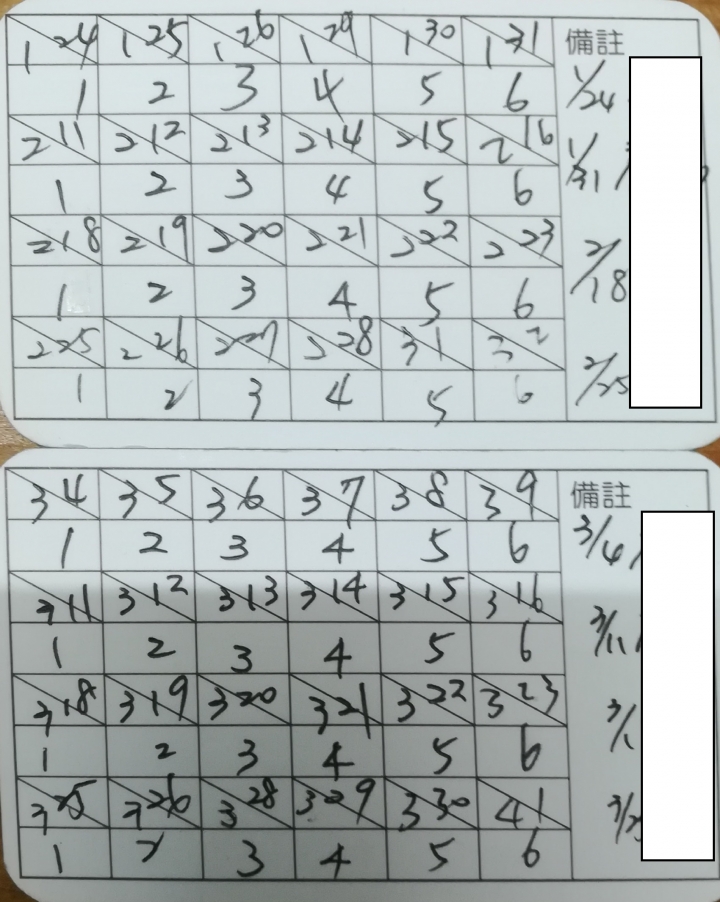 1 24 1 25 1 26 1 29 1 30 1 31 備註
1 2 3 4 5 6 1/24
2 11 2 12 2 13 2 14 2 15 2 16
1 2 3 4 5 6 1/31
2 18 2 19 2 20 2 21 2 22 2 23
1 2 3 4 5 6 2/18
2 25 2 26 2 27 2 28 3 1 3 2
1 2 3 4 5 6 2/25
3 4 3 5 3 6 3 7 3 8 3 9 備註
1 2 3 4 5 6 3/4
3 11 3 12 3 13 3 14 3 15 3 16
1 2 3 4 5 6 3/11
3 18 3 19 3 20 3 21 3 22 3 23
1 2 3 4 5 6
3 25 3 26 3 28 3 29 3 30 4 1
1 2 3 4 5 6 3/25